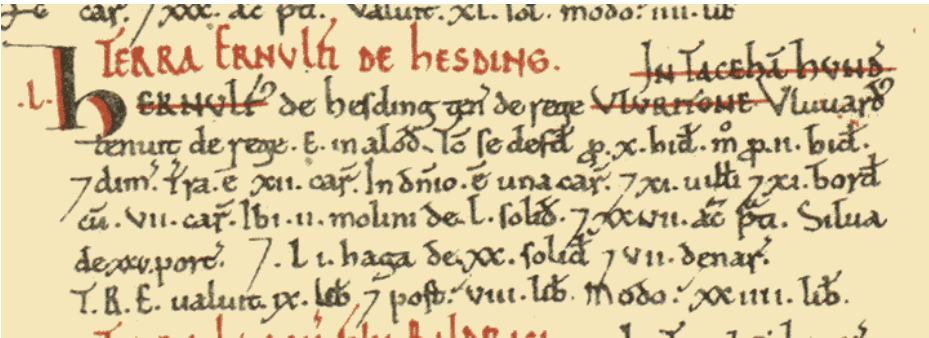 car̃. 7 xxx. ac̃ p̃ti. Valuit. xl. sol. modo. iiii. lib
TERRA ERNULFI DE HESDING.
In Taceha̅ hund'
.L. HERNULF' de hesding ten' de rege VLVRITONE Vluuard'
tenuit de rege. E. in alod'. Tc̅ se defd' p. x. hid'. m° p. ii. hid'.
7 dim'. T̃ra. e̅ xii. car̃. In dn̅io. e̅ una car̃. 7 xi. uill̃i 7 xi. bord'
cu̅. vii. car̃. Ibi. ii. molini de. l. solid'. 7 xxvii. ac̃ p̃ti. Silua
de xxv. porc'. 7. i. haga de xx. solid' 7 vii. denar'.
T. R. E. ualuit. ix. lib' 7 post'. viii. lib'. Modo'. xxiiii. lib'.